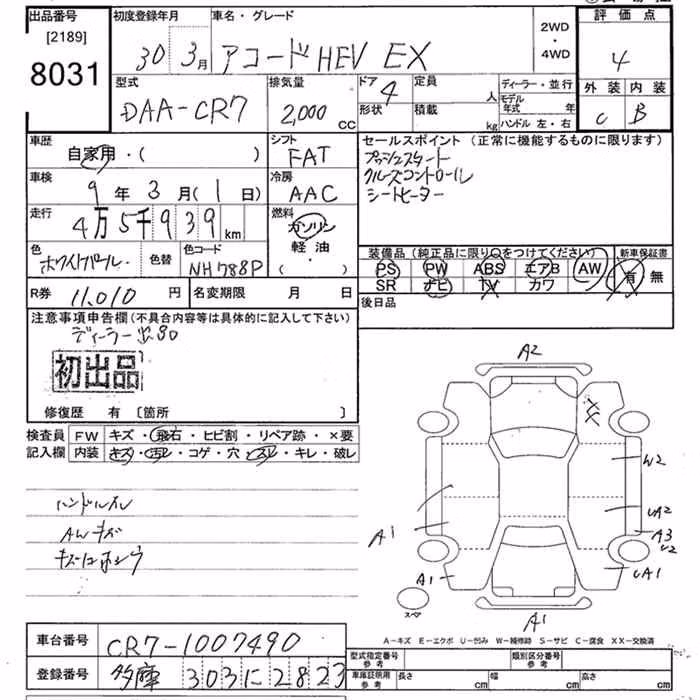 出品番号 [2189] 8031
初度登録年月 30 3月
車名・グレード アコードHEV EX
2WD・4WD
評価点 4
外装 C 内装 B
型式 DAA-CR7
排気量 2,000 CC
ドア 4 形状
定員 人
積載 kg
ディーラー・並行
モデル年式 年
ハンドル 左・右
車歴 自家用・( )
シフト FAT
車検 9年3月(1日)
冷房 AAC
走行 4万5千939km
燃料 ガソリン 軽油・( )
色 ホワイトパール 色替
色コード NH788P
R券 11,010円
名変期限 月 日
セールスポイント (正常に機能するものに限ります)
プッシュスタート
クルーズコントロール
シートヒーター
装備品(純正品に限り○をつけてください)
新車保証書
PS PW ABS エアB AW 有 無
SR ナビ TV カワ
後日品
注意事項申告欄(不具合内容等は具体的に記入して下さい)
初出品
修復歴 有 〔箇所 〕
検査員 FW キズ・飛石・ヒビ割・リペア跡・×要
記入欄 内装 キズ・汚レ・コゲ・穴・スレ・キレ・破レ
ハンドルスレ
AWキズ
A2
XX
W2
UA2
A3
U2
UA1
A1
A1
A1
スペア
A-キズ E-エクボ U-凹み W-補修跡 S-サビ C-腐食 XX-交換済
車台番号 CR7-1007490
登録番号 多摩 303に2823
型式指定番号 参考
類別区分番号 参考
車庫証明用 参考 長さ cm 幅 cm 高さ cm